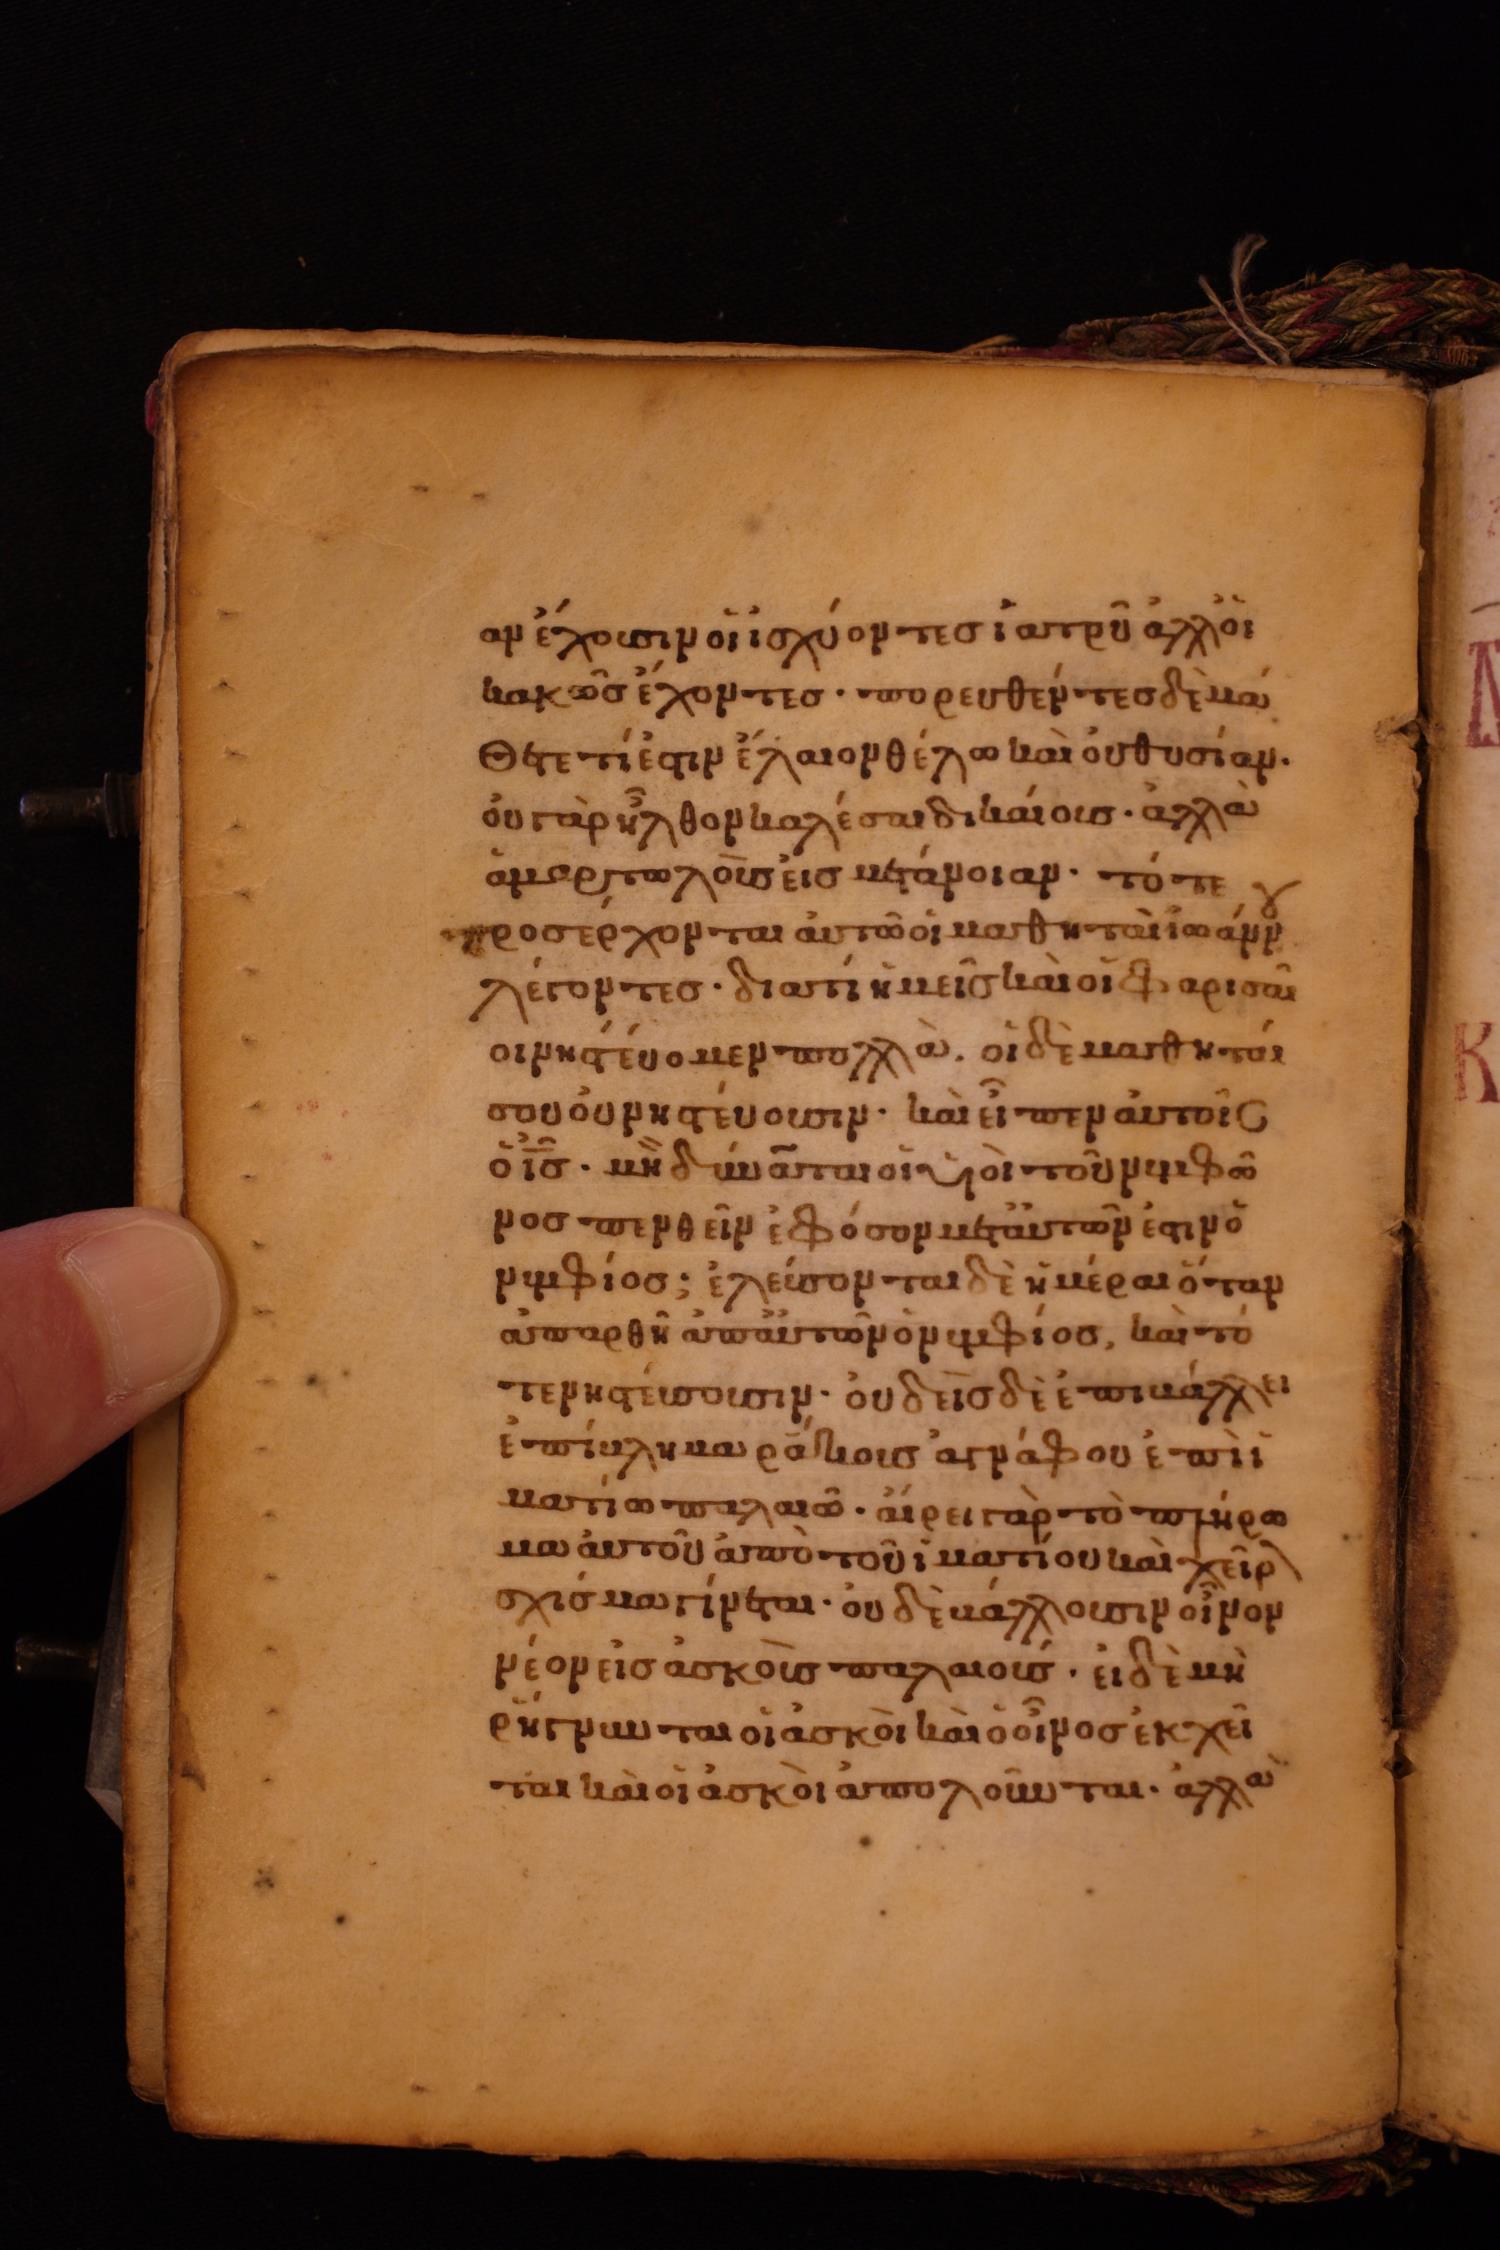 αν ἔχουσιν οἱ ἰσχύοντες ἰατροῦ ἀλλ οἱ
κακῶς ἔχοντες · πορευθέντες δὲ μά
θετε τί ἐστιν ἔλαιον θέλω καὶ οὐ θυσίαν ·
οὐ γὰρ ἦλθον καλέσαι δικαίους · ἀλλὰ
ἁμαρτωλοὺς εἰς μετάνοιαν · τότε
προσέρχονται αὐτῶ οἱ μαθηταὶ ἰωάννου
λέγοντες · διατί ἡμεῖς καὶ οἱ φαρισαῖ
οι νηστέυομεν πολλὰ . οἱ δὲ μαθηταί
σου οὐ νηστέυουσιν · καὶ εἶπεν αὐτοῖς
ὁ ἰς · μὴ δύνανται οἱ υἱοὶ τοῦ νυμφῶ
νος πενθεῖν ἐφόσον μετ αὐτῶν ἐστιν ὁ
νυμφίος ; ἐλεύσονται δὲ ἡμέραι ὅταν
ἀπαρθῆ ἀπ αὐτῶν ὁ νυμφίος , καὶ τό
τε νηστέυσουσιν · οὐδεὶς δὲ ἐπιβάλλει
ἐπίβλημα ράκους ἀγνάφου ἐπὶ ἱ
ματίω παλαιῶ · αἴρει γὰρ τὸ πλήρω
μα αὐτοῦ ἀπὸ τοῦ ἱματίου καὶ χεῖρον
σχίσμα γίνεται · οὐδὲ βάλλουσιν οἶνον
νέον εἰς ἀσκοὺς παλαιούς · εἰ δὲ μὴ
ρήγνυνται οἱ ἀσκοὶ καὶ ὁ οἶνος ἐκχεῖ
ται καὶ οἱ ἀσκοὶ ἀπολοῦνται · ἀλλὰ